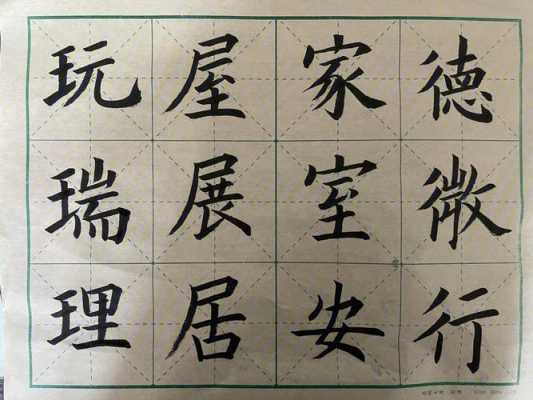 德微行
家室安
屋展居
玩瑞理